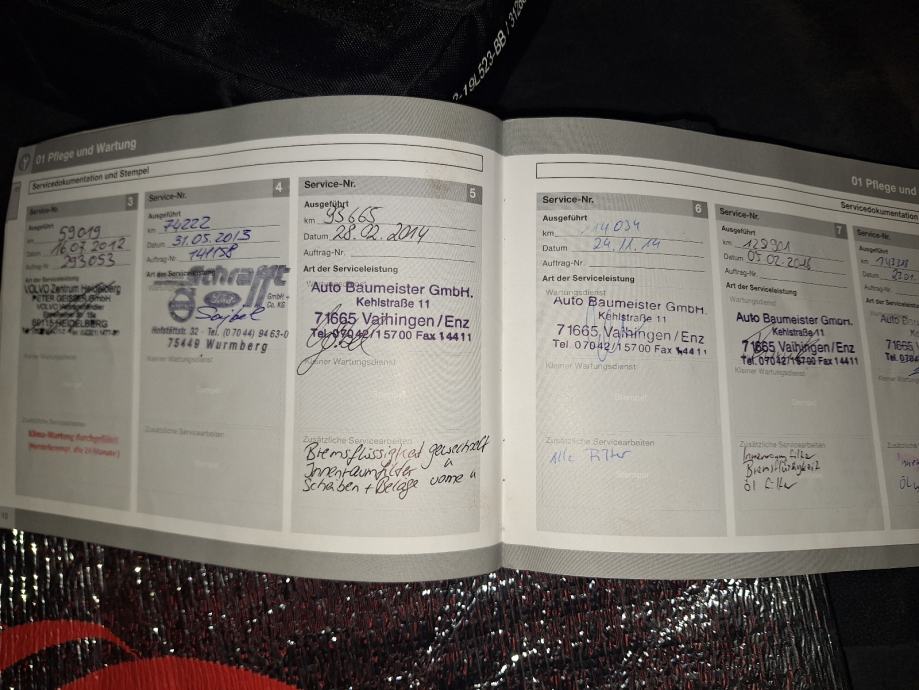 2-19L523-BB / 3126
01 Pflege und Wartung
Servicedokumentation und Stempel
3
Ausgeführt
km 59019
Datum 16.07.2012
Auftrag-Nr. 293053
Art der Serviceleistung
VOLVO Zentrum Heidelberg
PETER GEISSER GmbH
69115 HEIDELBERG
Zusätzliche Servicearbeiten
Klima-Wartung durchgeführt
Service-Nr. 4
Ausgeführt
km 74222
Datum 31.05.2013
Auftrag-Nr. 141158
Art der Serviceleistung
schrafft
Ford
GmbH +
Co. KG
Hofstättstr. 32 · Tel. (0 70 44) 94 63-0
75449 Wurmberg
Kleiner Wartungsdienst
Zusätzliche Servicearbeiten
Service-Nr. 5
Ausgeführt
km 95665
Datum 28.02.2014
Auftrag-Nr.
Art der Serviceleistung
Auto Baumeister GmbH.
Kehlstraße 11
71665 Vaihingen/Enz
Tel. 07042/15700 Fax 14411
Kleiner Wartungsdienst
Zusätzliche Servicearbeiten
Bremsflüssigkeit gewechselt
Innenraumfilter "
Scheiben + Beläge vorne "
01 Pflege und
Servicedokumentation
Service-Nr. 6
Ausgeführt
km
Datum 24.11.14
Auftrag-Nr.
Art der Serviceleistung
Wartungsdienst
Auto Baumeister GmbH.
Kehlstraße 11
71665 Vaihingen/Enz
Tel. 07042/15700 Fax 14411
Kleiner Wartungsdienst
Stempel
Zusätzliche Servicearbeiten
Alle Filter
Service-Nr. 7
Ausgeführt
km 128901
Datum 05.02.2016
Auftrag-Nr.
Art der Serviceleistung
Auto Baumeister GmbH.
Kehlstraße 11
71665 Vaihingen/Enz
Tel. 07042/15700 Fax 14411
Kleiner Wartungsdienst
Zusätzliche Servicearbeiten
Innenraum Filter
Bremsflüßigkeit
Öl Filter
Service-Nr.
Ausgeführt
km
Datum
Auftrag-Nr.
Art der Serviceleistung
Auto B
71665
Tel. 0704
Kleiner
Zusätzliche